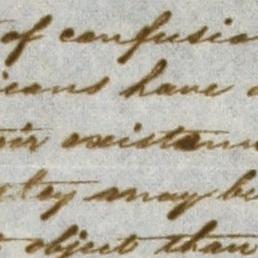 of confusio
icians have
eir existen
ety may be
object than